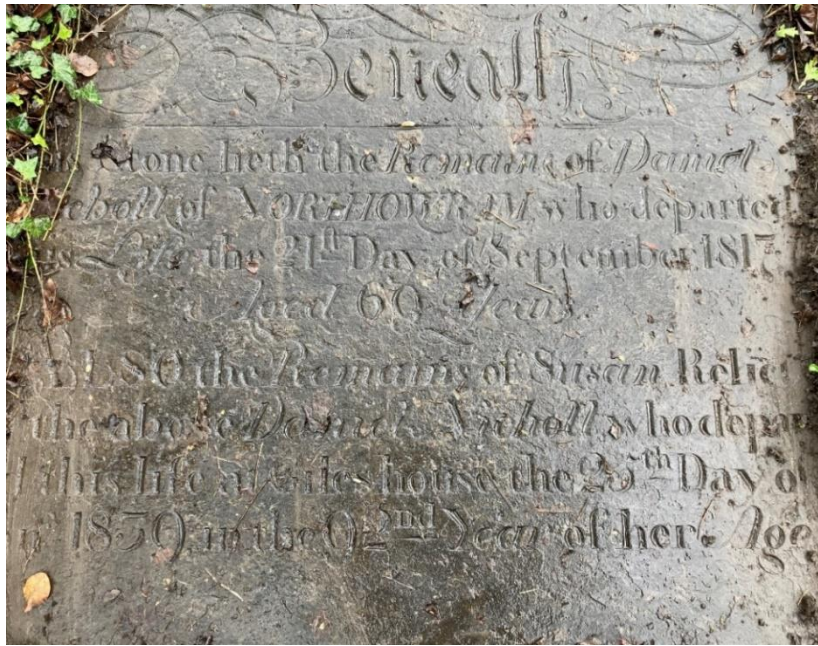 Beneath
Stone lieth the Remains of Daniel
of NORTHOWRAM who departed
Life the 21th Day of September 1817
Aged 69 Years.
ALSO the Remains of Susan Relic
the above Daniel Nicholl who depar
this life at house the 25th Day o
1839 in the 92nd Year of her Age